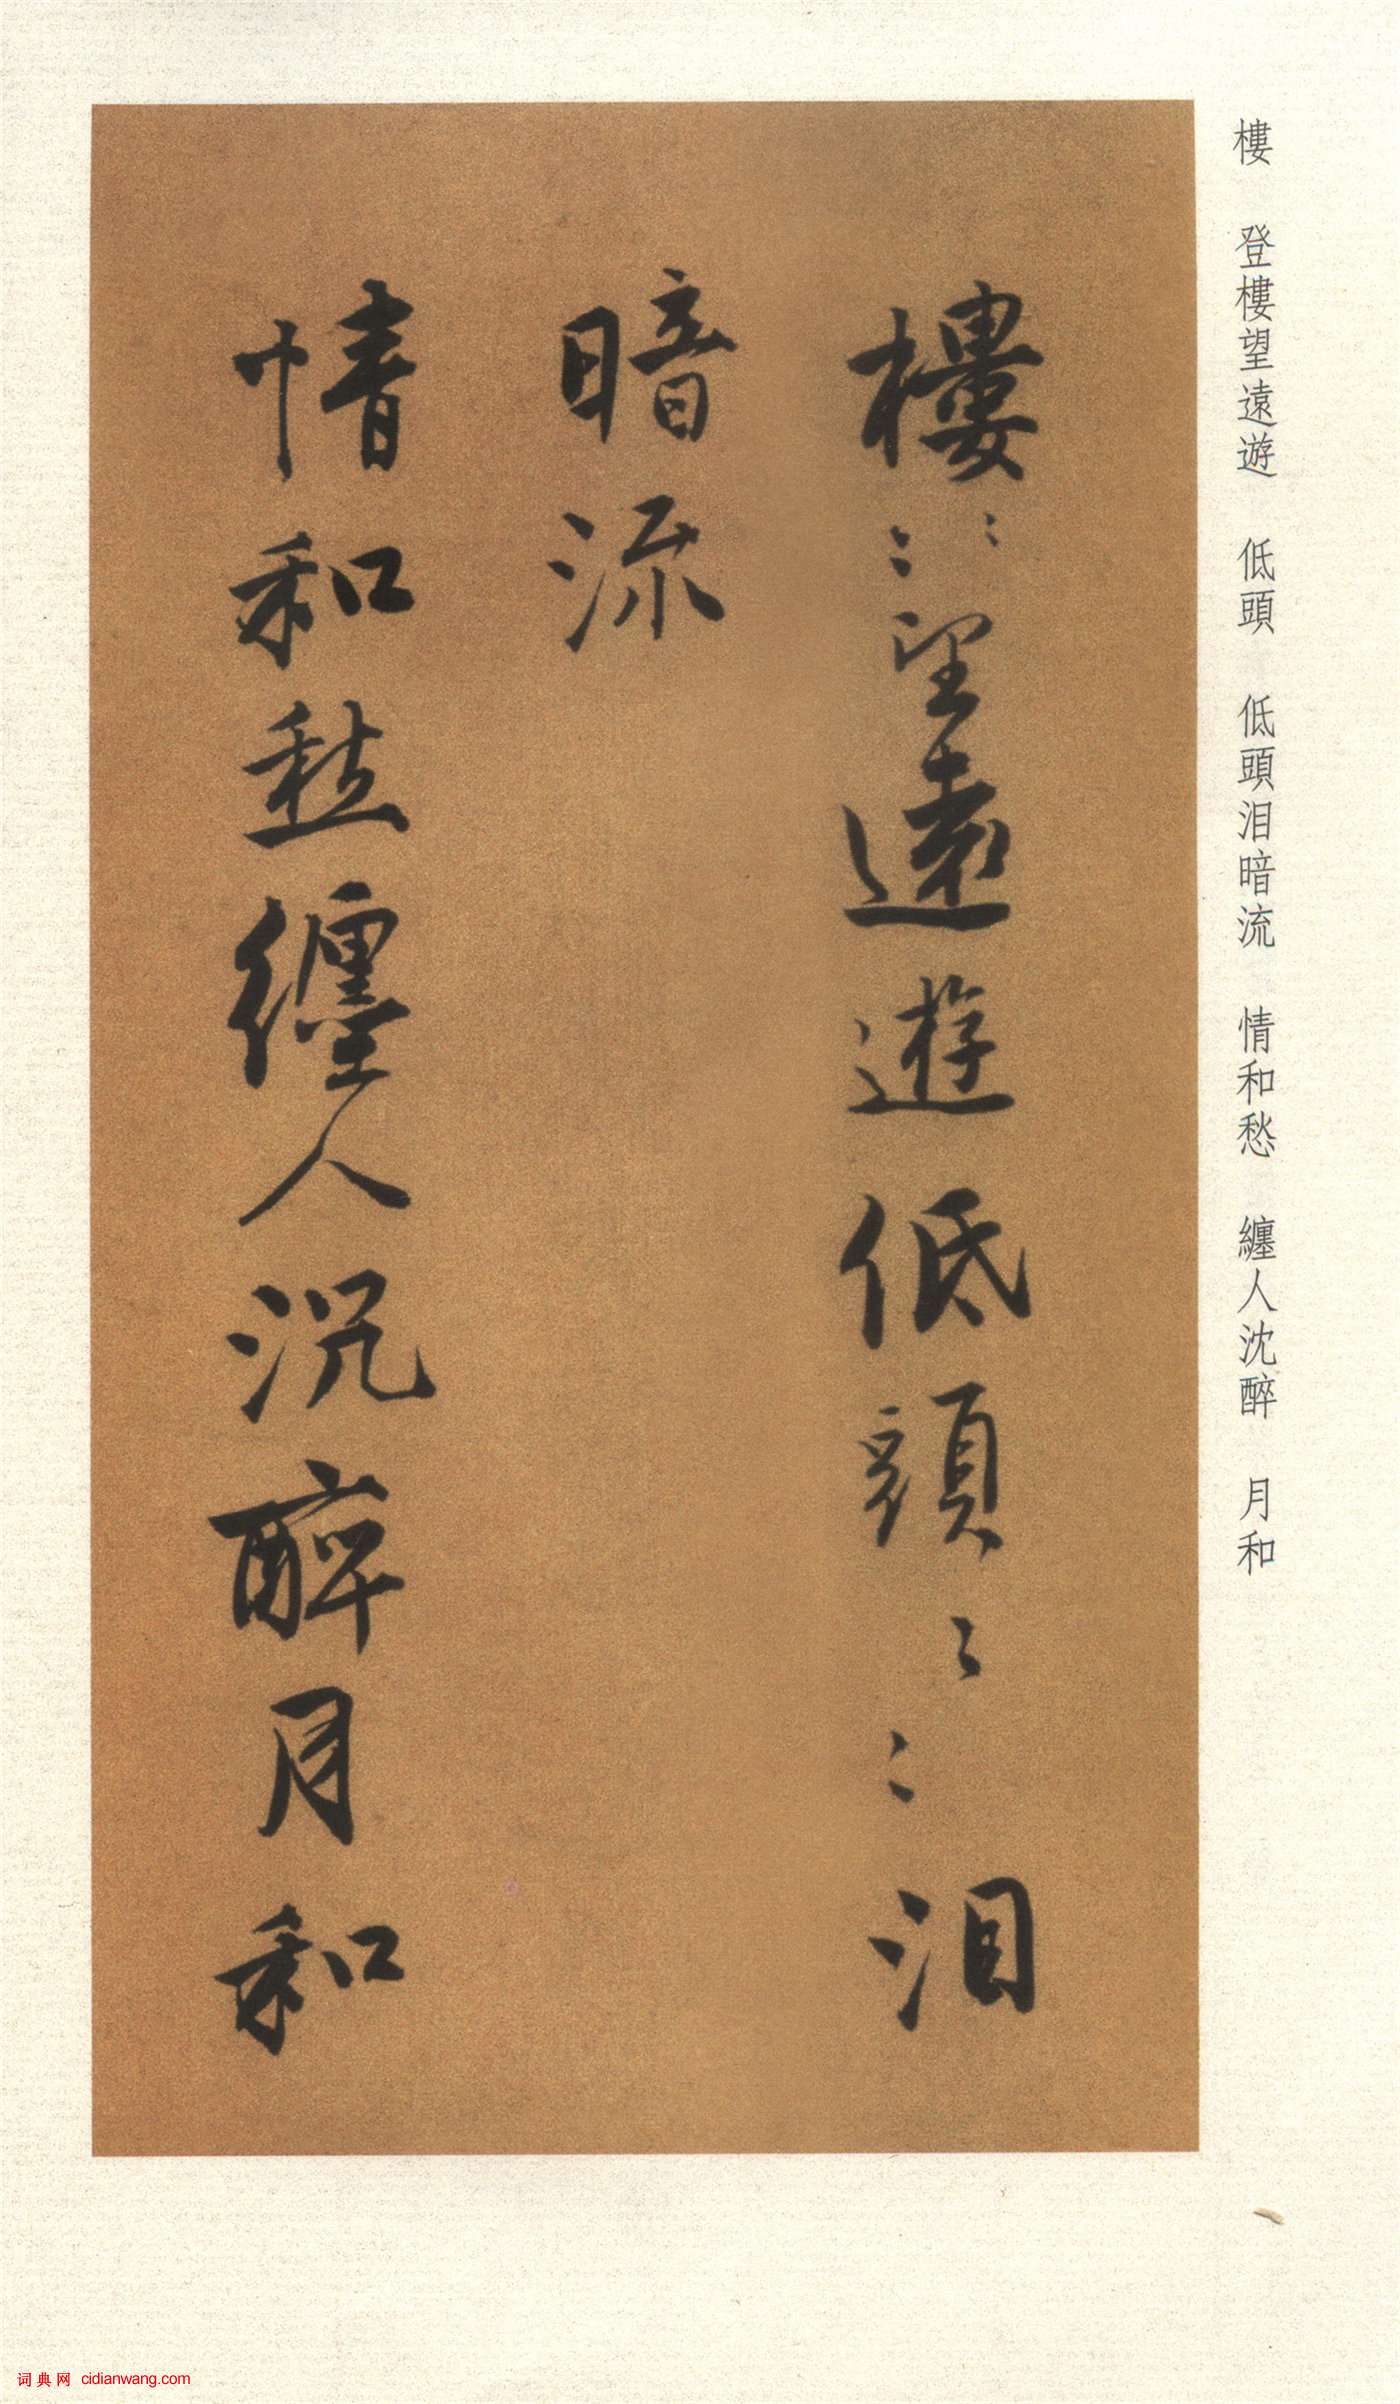 樓 登樓望遠遊 低頭 低頭泪暗流 情和愁 纏人沈醉 月和
樓〻〻望遠遊低頭〻〻泪
暗流
情和愁纏人沉醉月和
词典网 cidianwang.com